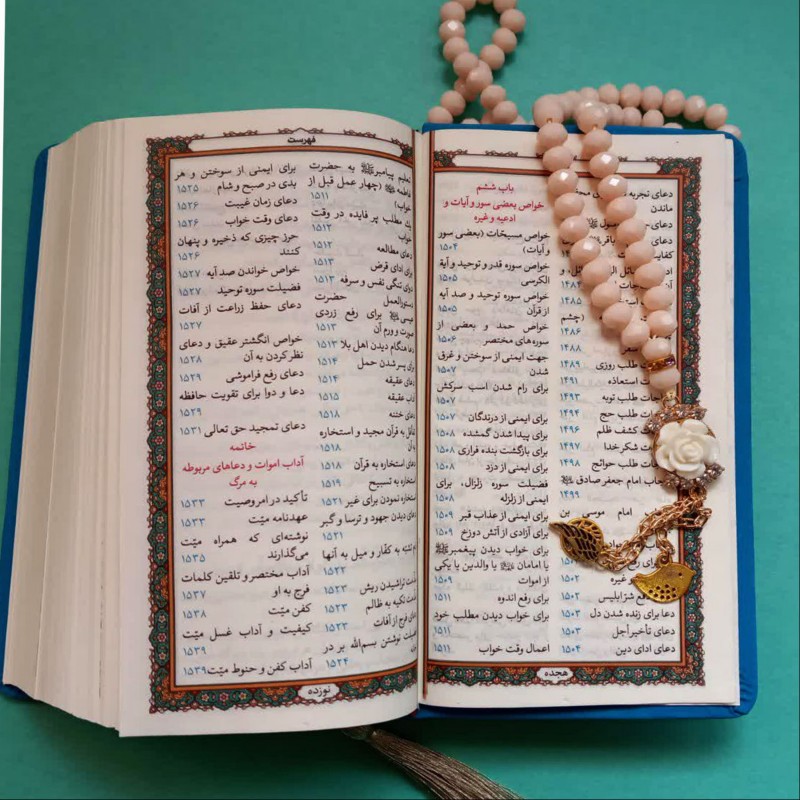 دعای تجربه
ماندن
رسول ﷺ
۱۴۸۵
(چشم
۱۴۸۶
طلب روزی ۱۴۸۹
استعاذه ۱۴۹۱
طلب توبه ۱۴۹۳
طلب حج ۱۴۹۴
کشف ظلم ۱۴۹۶
شکر خدا ۱۴۹۷
طلب حوائج ۱۴۹۸
امام جعفر صادق ﷺ
۱۴۹۹
امام موسی بن
و غیره ۱۵۰۲
شرّ ابلیس ۱۵۰۲
دعا برای زنده شدن دل ۱۵۰۳
دعای تأخیر أجل ۱۵۰۳
دعای ادای دین ۱۵۰۴
باب ششم
خواص بعضی سور و آیات و
ادعیه و غیره
خواص مسبحّات (بعضی سور
و آیات) ۱۵۰۴
خواص سوره قدر و توحید و آیة
الکرسی ۱۵۰۵
خواص سوره توحید و صد آیه
از قرآن ۱۵۰۵
خواص حمد و بعضی از
سوره‌های مختصر ۱۵۰۶
جهت ایمنی از سوختن و غرق
شدن ۱۵۰۷
برای رام شدن اسب سرکش
۱۵۰۷
برای ایمنی از درندگان ۱۵۰۷
برای پیدا شدن گمشده ۱۵۰۸
برای بازگشت بنده فراری ۱۵۰۸
برای ایمنی از دزد ۱۵۰۸
فضیلت سوره زلزال، برای
ایمنی از زلزله ۱۵۰۸
برای ایمنی از عذاب قبر ۱۵۰۹
برای آزادی از آتش دوزخ ۱۵۰۹
برای خواب دیدن پیغمبر ﷺ
یا امامان ﷺ یا والدین یا یکی
از اموات ۱۵۰۹
برای رفع اندوه ۱۵۱۱
برای خواب دیدن مطلب خود
۱۵۱۱
اعمال وقت خواب ۱۵۱۱
هجده
فهرست
تعلیم پیامبر ﷺ به حضرت
فاطمه ﷺ (چهار عمل قبل از
خواب) ۱۵۱۱
یك مطلب پر فایده در وقت
خواب ۱۵۱۲
دعای مطالعه ۱۵۱۲
برای ادای قرض ۱۵۱۳
برای تنگی نفس و سرفه ۱۵۱۳
دستورالعمل حضرت
عیسی ﷺ برای رفع زردی
صورت و ورم آن ۱۵۱۳
دعا هنگام دیدن اهل بلا ۱۵۱۳
برای پسر شدن حمل ۱۵۱۴
دعای عقیقه ۱۵۱۴
آداب عقیقه ۱۵۱۵
دعای ختنه ۱۵۱۸
به قرآن مجید و استخاره
۱۵۱۸
دعای استخاره به قرآن ۱۵۱۸
استخاره به تسبیح ۱۵۱۹
استخاره نمودن برای غیر ۱۵۲۱
دعای دیدن جهود و ترسا و گبر
۱۵۲۱
به کفّار و میل به آنها
۱۵۲۲
تراشیدن ریش ۱۵۲۳
تکیه به ظالم ۱۵۲۳
دعای فرج از آفات ۱۵۲۳
فضیلت نوشتن بسم‌الله بر در
۱۵۲۴
برای ایمنی از سوختن و هر
بدی در صبح و شام ۱۵۲۵
دعای زمان غیبت ۱۵۲۶
دعای وقت خواب ۱۵۲۶
حرز چیزی که ذخیره و پنهان
کنند ۱۵۲۶
خواص خواندن صد آیه ۱۵۲۷
فضیلت سوره توحید ۱۵۲۷
دعای حفظ زراعت از آفات
۱۵۲۷
خواص انگشتر عقیق و دعای
نظر کردن به آن ۱۵۲۸
دعای رفع فراموشی ۱۵۲۹
دعا و دوا برای تقویت حافظه
۱۵۲۹
دعای تمجید حق تعالی ۱۵۳۱
خاتمه
آداب اموات و دعاهای مربوطه
به مرگ
تأکید در امر وصیت ۱۵۳۳
عهدنامه میّت ۱۵۳۳
نوشته‌ای که همراه میّت
می‌گذارند ۱۵۳۵
آداب مختصر و تلقین کلمات
فرج به او ۱۵۳۷
کفن میّت ۱۵۳۸
کیفیت و آداب غسل میّت
۱۵۳۹
آداب کفن و حنوط میّت ۱۵۳۹
نوزده